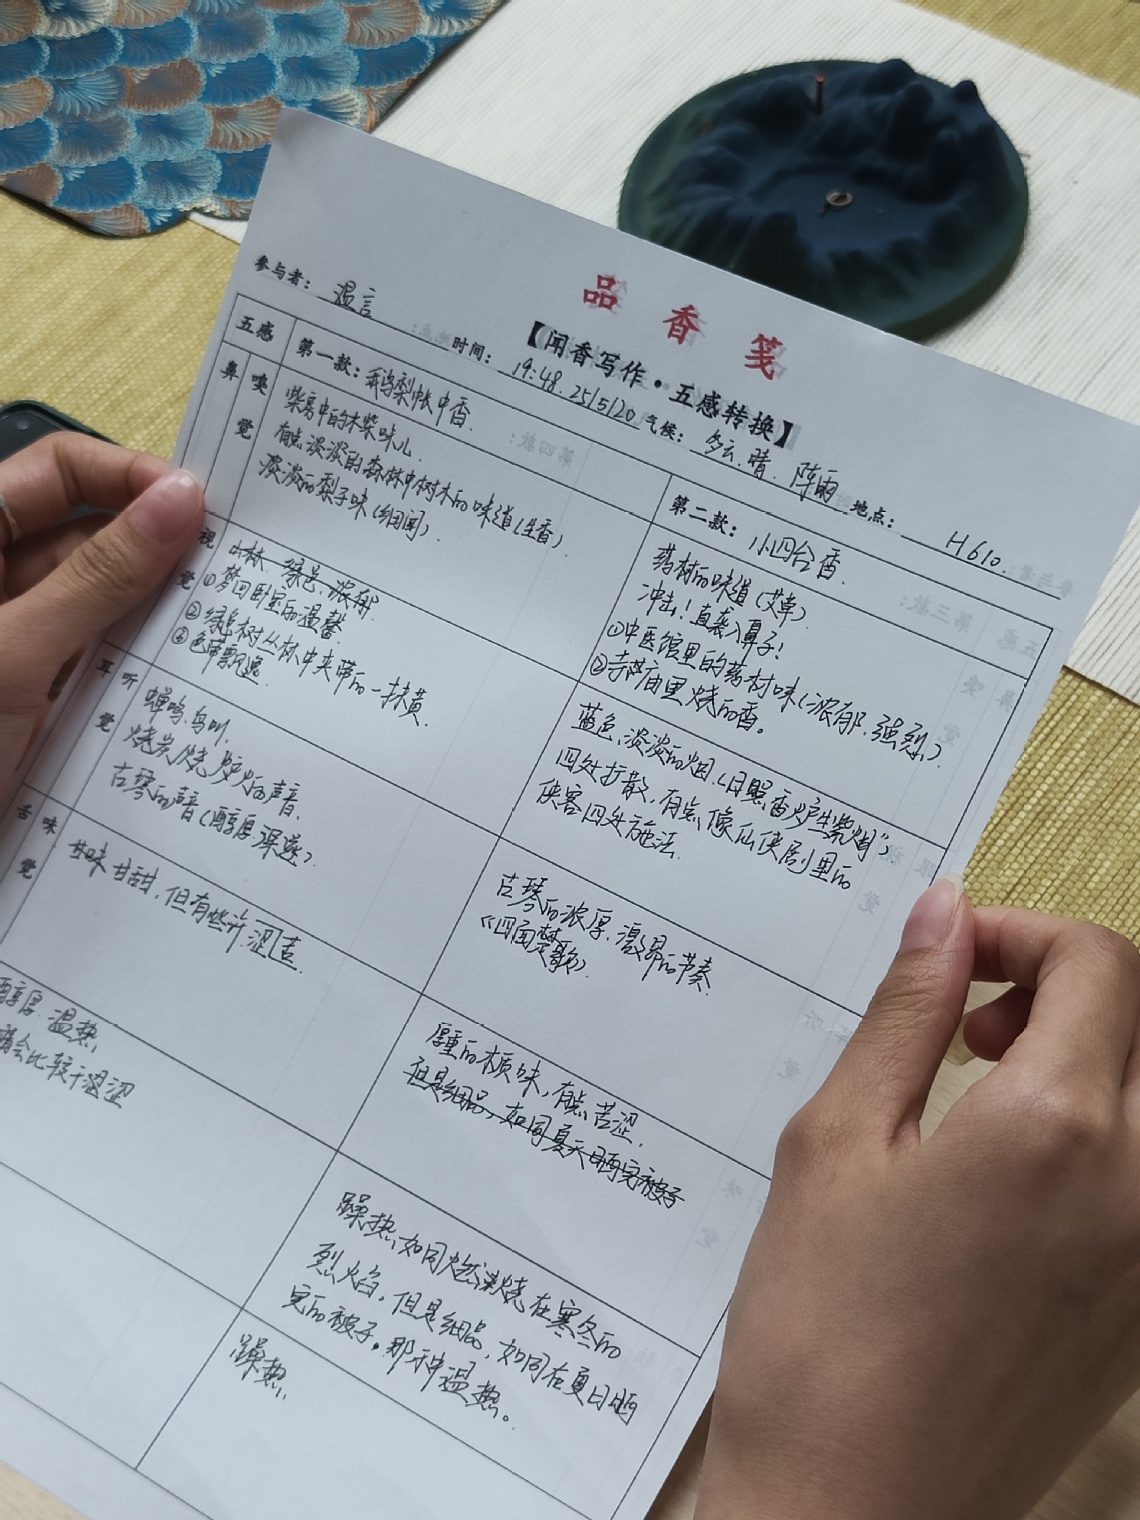 品香笺
【闻香写作·五感转换】
参与者：温言 时间：19:48.25/5/20 气候：多云、晴、阵雨 地点：H610.
五感 第一款：鹅梨帐中香. 第二款：小四合香.
鼻 嗅觉
柴房中的木柴味儿.
有点淡淡的森林中树木的味道(生香).
淡淡的梨子味(细闻).
药材的味道(艾草).
冲击！直袭入鼻子！
①中医馆里的药材味(浓郁.强烈)
②寺庙里烧的香。
视觉
山林、绿色、浓郁.
①梦回卧室的温馨
②绿色树丛林中夹带的一抹黄.
③色带飘逸.
蓝色、淡淡的烟.(“日照香炉生紫烟”)
四处扩散，有点像仙侠剧里的
侠客四处施法.
耳 听觉
蝉鸣、鸟叫.
烧炭/烧炉火的声音.
古琴的声音(醇厚深邃)
古琴的浓厚.激昂的节奏.
《四面楚歌》.
舌 味觉
甘味 甘甜，但有些许涩苦.
厚重的木质味，有点苦涩.
但是细品，如同夏天晒完被子
醇厚.温热，
会比较干涩
躁热，如同燃烧在寒冬的
烈火焰，但是细品，如同在夏日晒
完的被子。那种温热。
躁热.